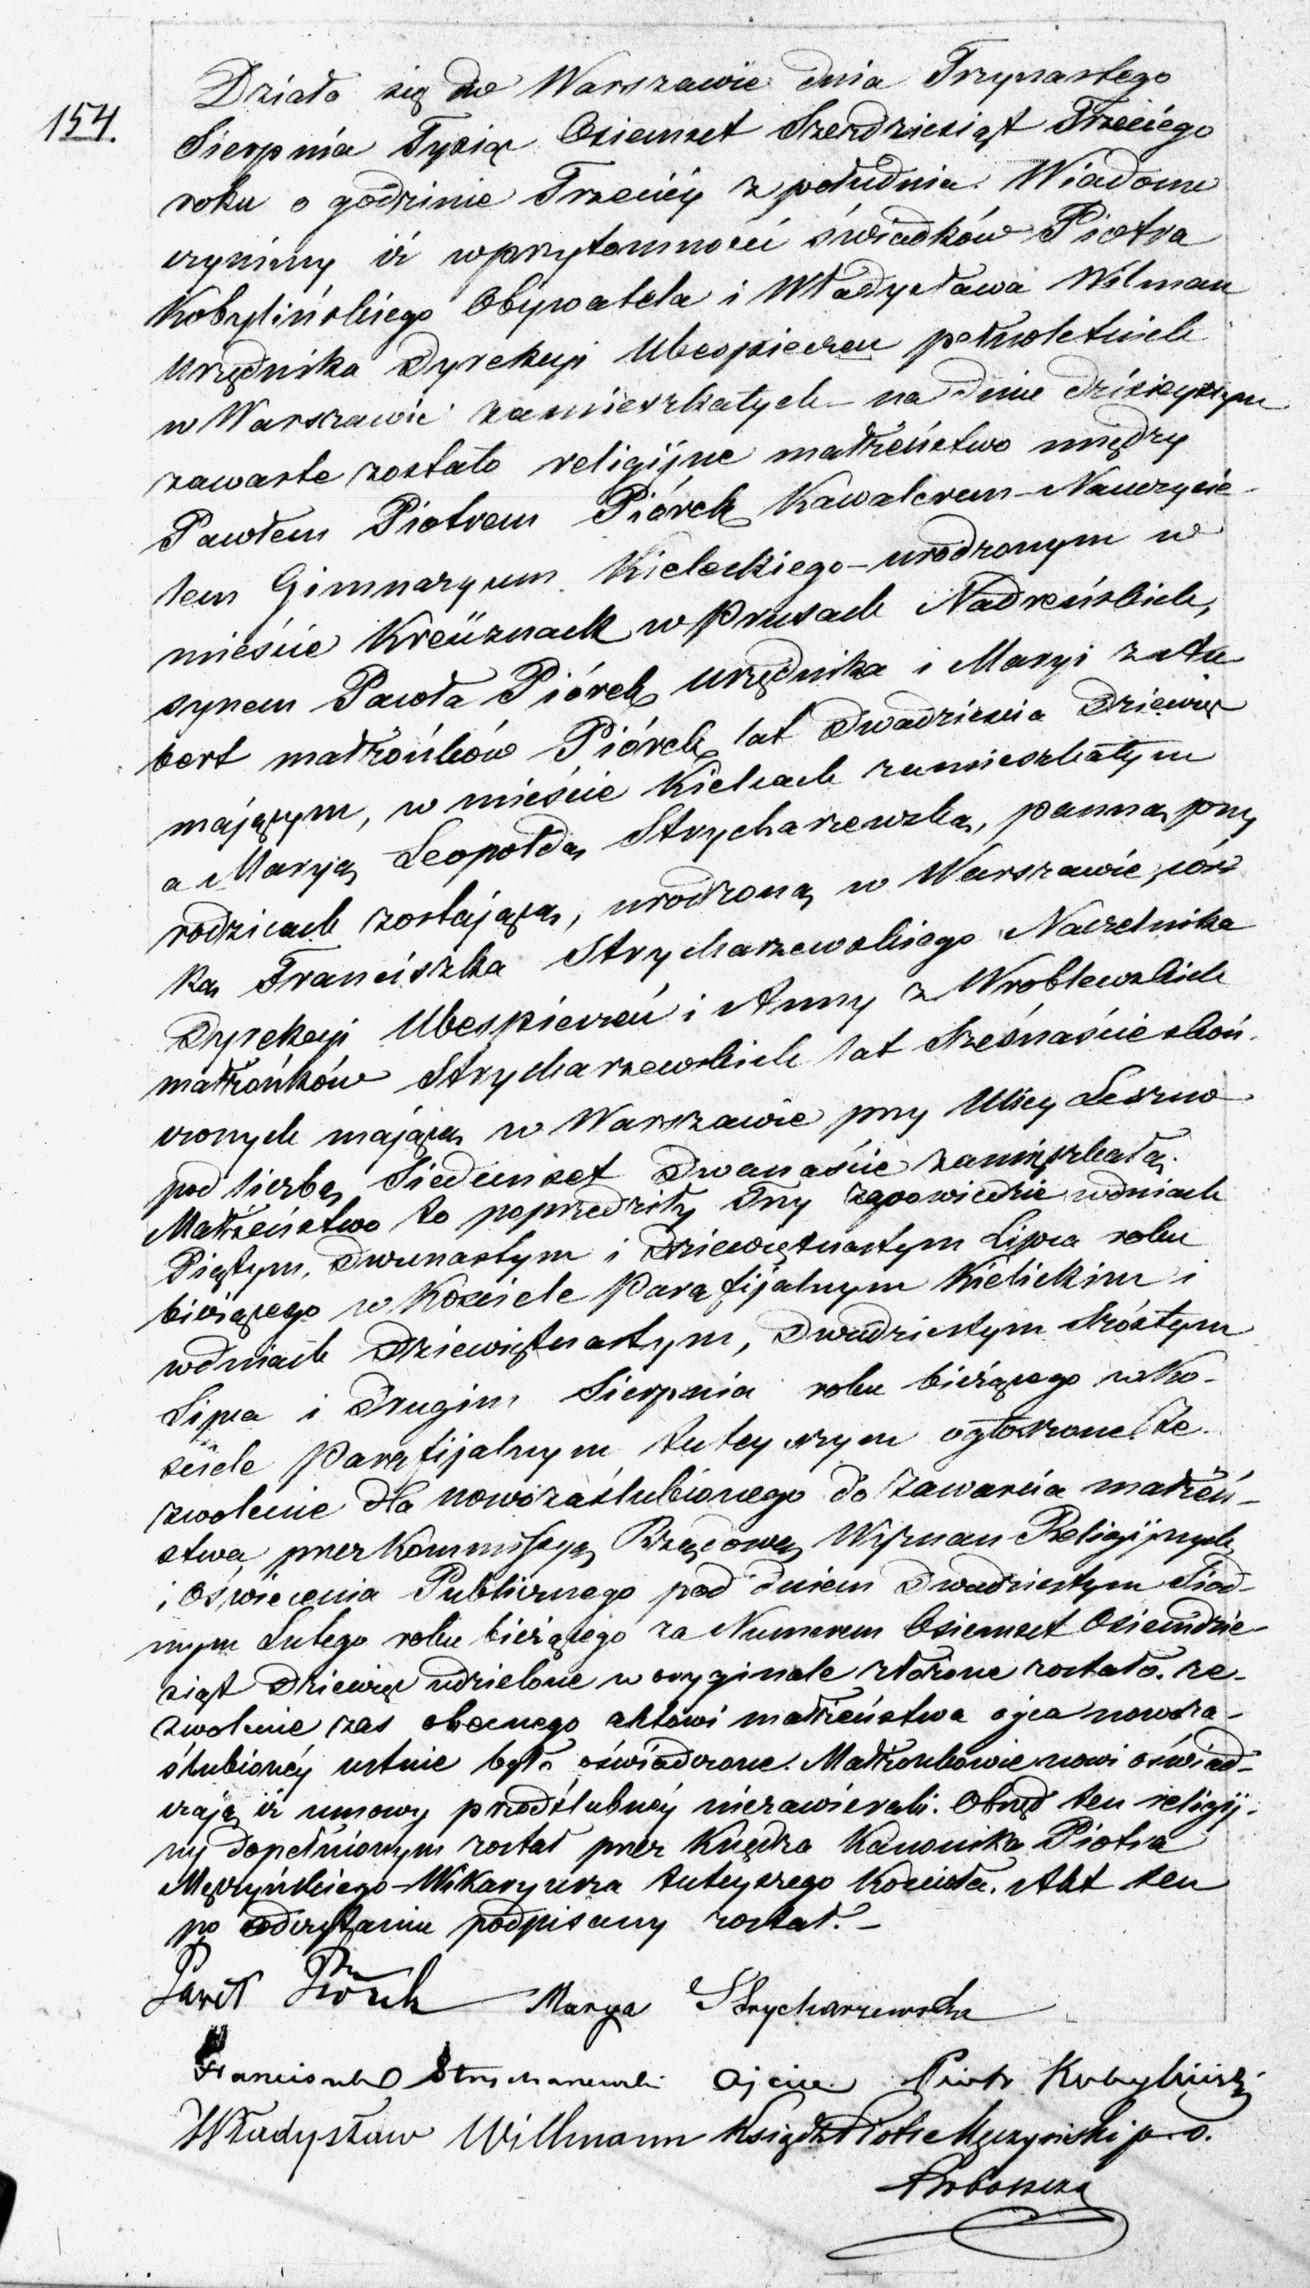 154.
Działo się w Warszawie dnia Trzynastego
Sierpnia Tysiąc Osiemset Szesdziesiąt Trzeciego
roku o godzinie Trzeciéy z południa. Wiadomo
czyniemy iż wprzytomności świadków Piotra
Kobylińskiego Obywatela i Władysława Wilman
Urzędnika Dyrekcyi Ubespieczeń pełnoletnich
w Warszawie zamieszkałych – na dniu dzisieyszym
zawarte zostało religijne małżeństwo między
Pawłem Piotrem Piórek Kawalerem – Nauczycie-
lem Gimnazyum Kieleckiego – urodzonym w
mieście Kreüznach w Prusach Nadreńskich,
synem Pawła Piórek Urzędnika i Maryi z
bert małżonków Piórek, lat Dwadzieścia Dziewięć
mającym, w mieście Kielcach zamieszkałym
a Maryą Leopoldą Strycharzewską, panną przy
rodzicach zostającą, urodzoną w Warszawie, cór-
ką Franciszka Strycharzewskiego Naczelnika
Dyrekcyi Ubespieczeń i Anny z Wroblewskich
małżonków Strycharzewskich lat Szesnaście skoń-
czonych mającą w Warszawie przy Ulicy Leszno
pod liczbą Siedemset Dwanaście zamieszkałą.
Małżeństwo to poprzedziły Trzy zapowiedzie wdniach
Piątym, Dwunastym i Dziewiętnastym Lipca roku
bieżącego w Kościele Parafijalnym Kieleckim i
wdniach Dziewiętnastym, Dwudziestym Szóstym
Lipca i Drugim Sierpnia roku bieżącego w Ko-
ściele Parafijalnym tuteyszym ogłoszone. Ze-
zwolenie dla nowozaślubionego do zawarcia małżeń-
stwa, przez Kommissyą Rządową Wyznań Religijnych
i Oświecenia Publicznego pod dniem Dwudziestym Siód-
mym Lutego roku bieżącego za Numerem Osiemset Osiemdzie-
siąt Dziewięć udzielone w oryginale złożone zostało. Ze-
zwolenie zas obecnego aktowi małżeństwa ojca nowoza-
ślubionéy ustnie było oświadczone. Małżonkowie nowi oświad-
czają iż umowy przedślubnéy niezawierali. Obrzęd ten religij-
ny dopełnionym został przez Księdza Kanonika Piotra
Męczyńskiego – Wikaryusza tuteyszego Kościoła. Akt ten
po odczytaniu podpisany został. –
Paweł Piórek Marya Strycharzewska
Franciszek Strycharzewski Ojciec Piotr Kobyliński
Władysław Willmann Ksiądz Piotr Męczyński p. o.
Proboszcza